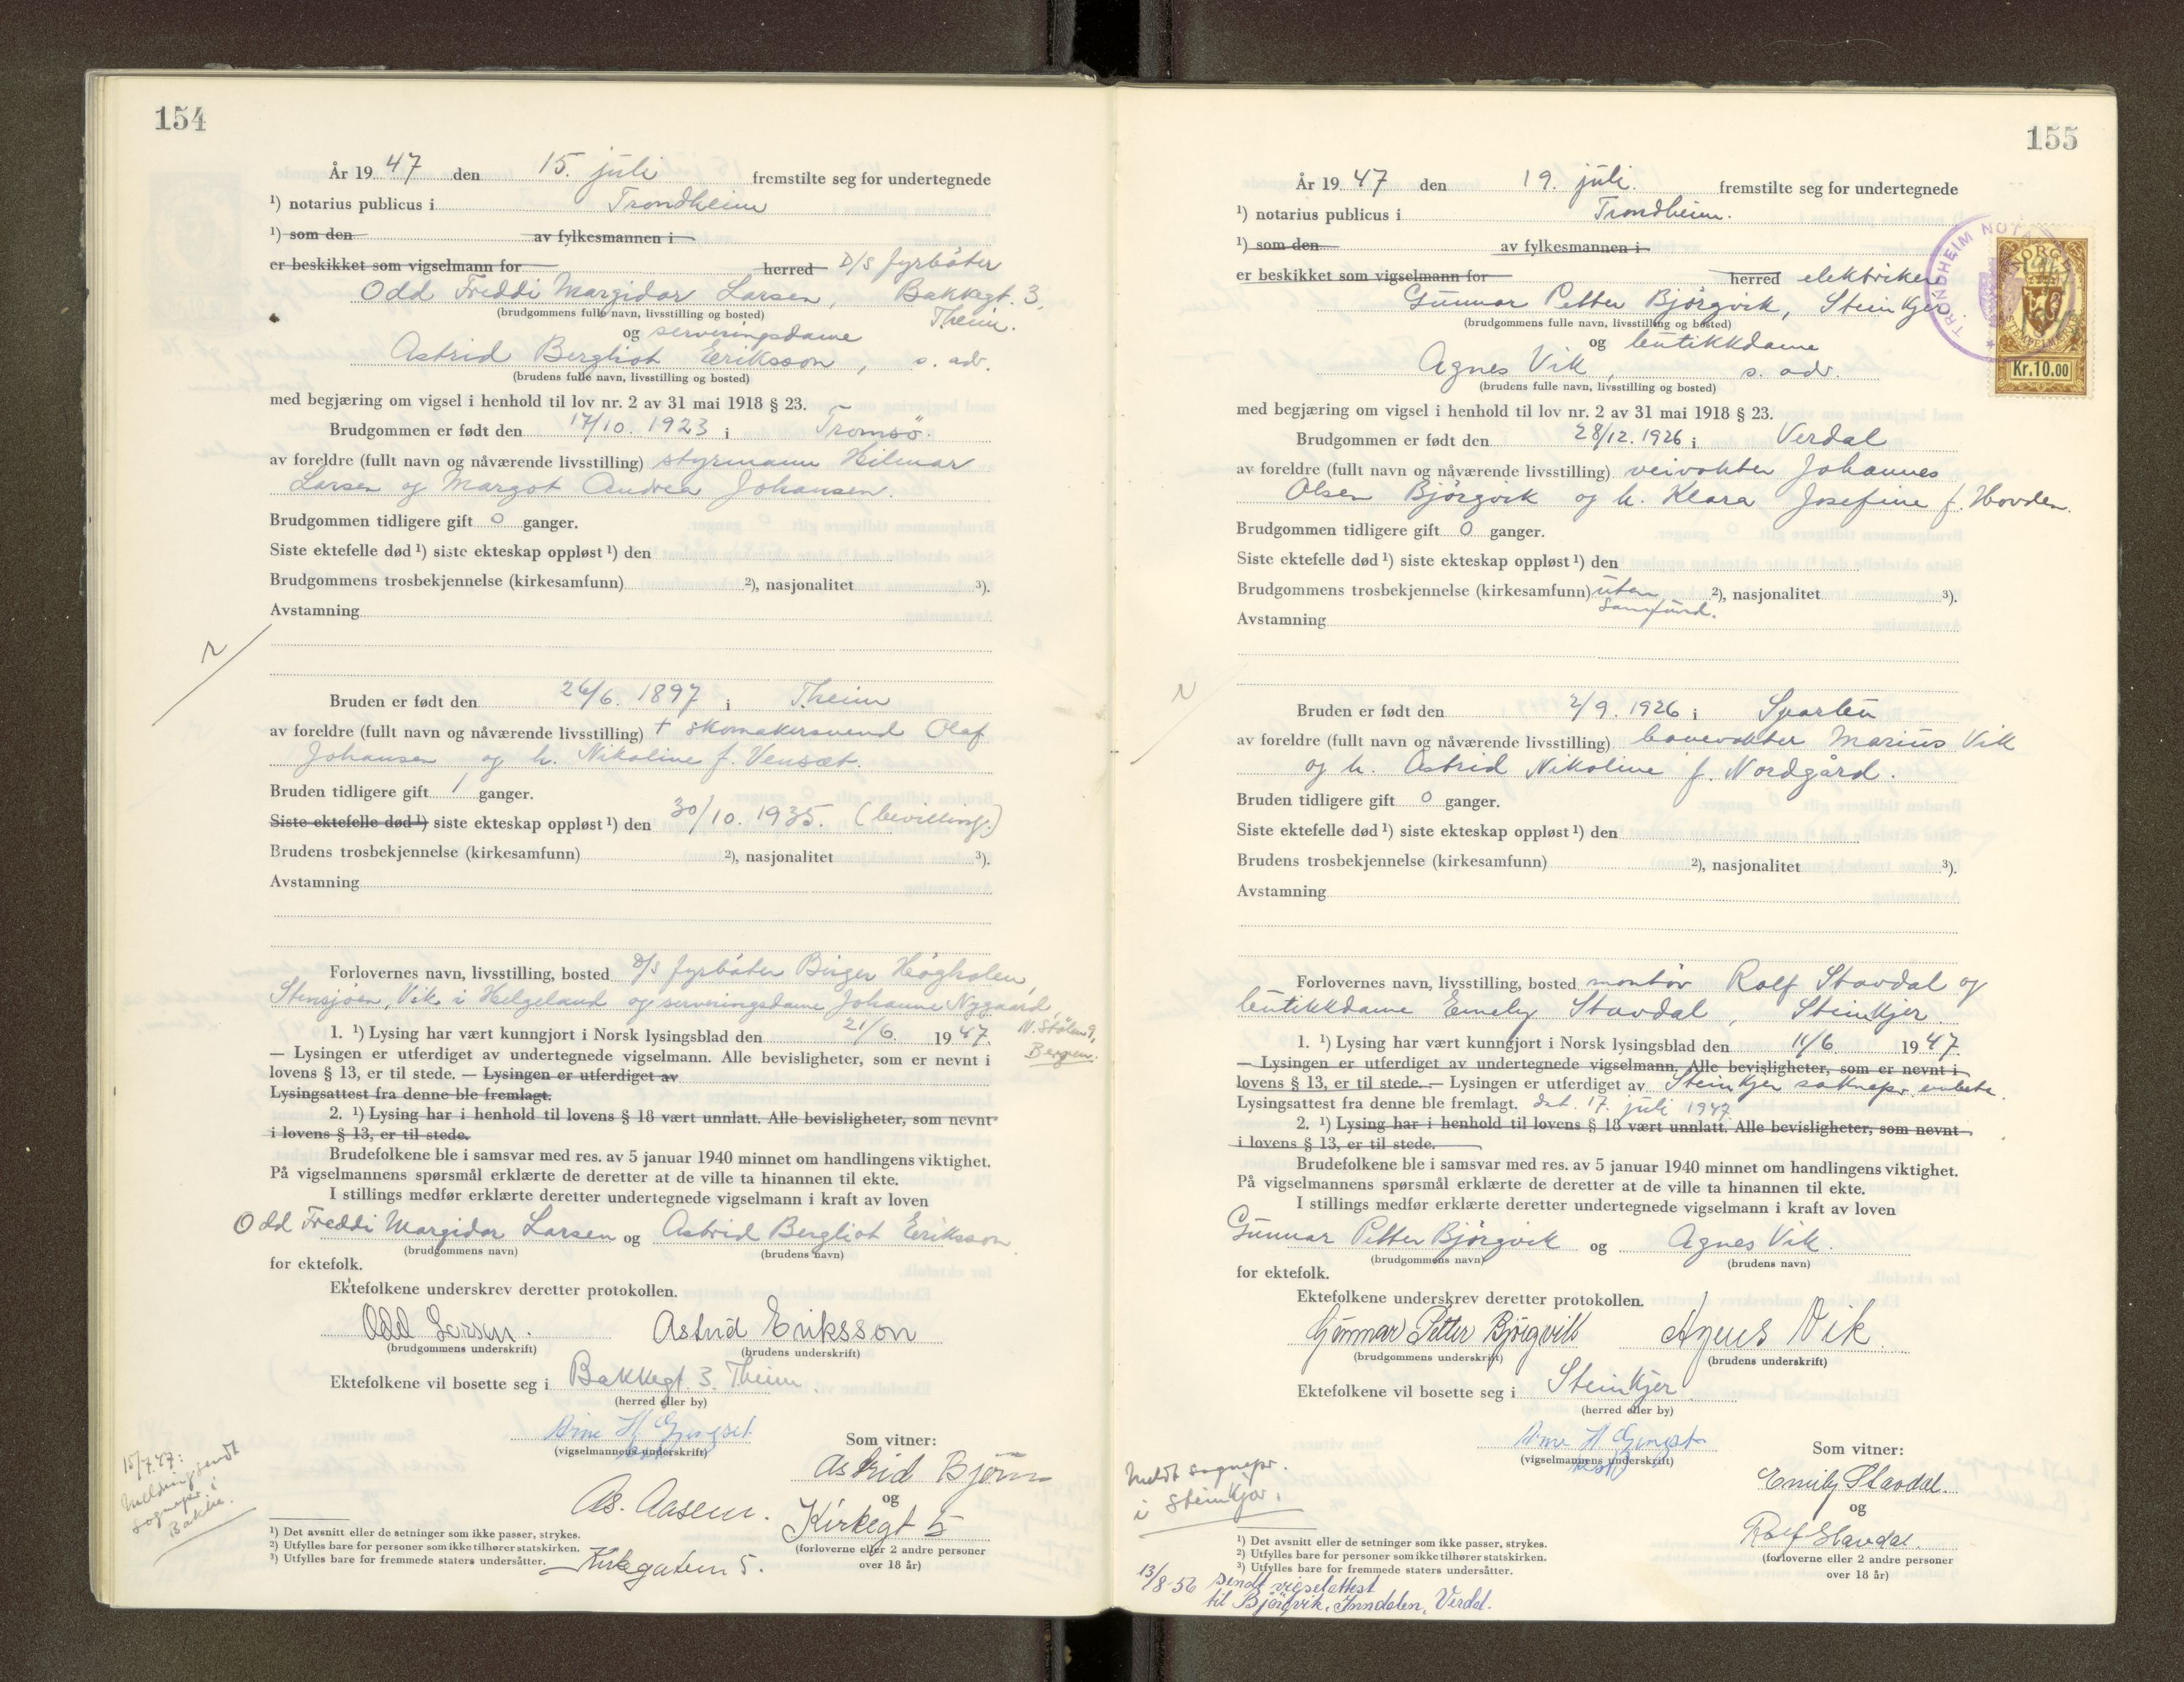 154
År 19 47 den 15. juli fremstilte seg for undertegnede
¹) notarius publicus i Trondheim
¹) som den av fylkesmannen i
er beskikket som vigselmann for herred D/S fyrbøter
Odd Freddi Margidar Larsen, Bakkegt. 3,
(brudgommens fulle navn, livsstilling og bosted) Theim.
og serveringsdame
Astrid Bergliot Eriksson, s. adr.
(brudens fulle navn, livsstilling og bosted)
med begjæring om vigsel i henhold til lov nr. 2 av 31 mai 1918 § 23.
Brudgommen er født den 17/10. 1923 i Tromsö.
av foreldre (fullt navn og nåværende livsstilling) styrmann Hilmar
Larsen og Margot Andrea Johansen.
Brudgommen tidligere gift 0 ganger.
Siste ektefelle død ¹) siste ekteskap oppløst ¹) den
Brudgommens trosbekjennelse (kirkesamfunn) ²), nasjonalitet ³).
Avstamning
Bruden er født den 26/6. 1897 i Theim
av foreldre (fullt navn og nåværende livsstilling) + skomakersvend Olaf
Johansen og h. Nikoline f. Vensæt.
Bruden tidligere gift 1 ganger.
Siste ektefelle død ¹) siste ekteskap oppløst ¹) den 30/10. 1935. (bevilling.)
Brudens trosbekjennelse (kirkesamfunn) ²), nasjonalitet ³).
Avstamning
Forlovernes navn, livsstilling, bosted D/S fyrbøter Birger Högholen,
Stensjøen, Vik i Helgeland og serveringsdame Johanne Nygaard,
N. Stølen 9,
Bergen.
1. ¹) Lysing har vært kunngjort i Norsk lysingsblad den 21/6. 19 47.
— Lysingen er utferdiget av undertegnede vigselmann. Alle bevisligheter, som er nevnt i
lovens § 13, er til stede. — Lysingen er utferdiget av
Lysingsattest fra denne ble fremlagt.
2. ¹) Lysing har i henhold til lovens § 18 vært unnlatt. Alle bevisligheter, som nevnt
i lovens § 13, er til stede.
Brudefolkene ble i samsvar med res. av 5 januar 1940 minnet om handlingens viktighet.
På vigselmannens spørsmål erklærte de deretter at de ville ta hinannen til ekte.
I stillings medfør erklærte deretter undertegnede vigselmann i kraft av loven
Odd Freddi Margidar Larsen og Astrid Bergliot Eriksson
(brudgommens navn) (brudens navn)
for ektefolk.
Ektefolkene underskrev deretter protokollen.
Odd Larsen. Astrid Eriksson
(brudgommens underskrift) (brudens underskrift)
Ektefolkene vil bosette seg i Bakkegt. 3, Theim.
(herred eller by)
Arne H.
(vigselmannens underskrift)
Som vitner:
Astrid Bjørn
og
As. Aasen. Kirkegt 5
Kirkegaten 5.
(forloverne eller 2 andre personer
over 18 år)
15/7.47:
Melding sendt
sognepr. i
Bakke.
¹) Det avsnitt eller de setninger som ikke passer, strykes.
²) Utfylles bare for personer som ikke tilhører statskirken.
³) Utfylles bare for fremmede staters undersåtter.
155
År 19 47 den 19. juli. fremstilte seg for undertegnede
¹) notarius publicus i Trondheim.
¹) som den av fylkesmannen i
er beskikket som vigselmann for herred elektriker
Gunnar Petter Bjørgvik, Steinkjer.
(brudgommens fulle navn, livsstilling og bosted)
og butikkdame
Agnes Vik, s. adr.
(brudens fulle navn, livsstilling og bosted)
TRONDHEIM NOT
NORGE
STEMPELMERKE
Kr.10.00
med begjæring om vigsel i henhold til lov nr. 2 av 31 mai 1918 § 23.
Brudgommen er født den 28/12. 1926 i Verdal
av foreldre (fullt navn og nåværende livsstilling) veivokter Johannes
Olsen Bjørgvik og h. Klara Josefine f. Hovden.
Brudgommen tidligere gift 0 ganger.
Siste ektefelle død ¹) siste ekteskap oppløst ¹) den
Brudgommens trosbekjennelse (kirkesamfunn) uten ²), nasjonalitet ³).
samfund.
Avstamning
Bruden er født den 2/9. 1926 i Sparbu
av foreldre (fullt navn og nåværende livsstilling) banevokter Marius Vik
og h. Astrid Nikoline f. Nordgård.
Bruden tidligere gift 0 ganger.
Siste ektefelle død ¹) siste ekteskap oppløst ¹) den
Brudens trosbekjennelse (kirkesamfunn) ²), nasjonalitet ³).
Avstamning
Forlovernes navn, livsstilling, bosted montör Rolf Stavdal og
butikkdame Emely Stavdal, Steinkjer.
1. ¹) Lysing har vært kunngjort i Norsk lysingsblad den 11/6. 19 47.
— Lysingen er utferdiget av undertegnede vigselmann. Alle bevisligheter, som er nevnt i
lovens § 13, er til stede. — Lysingen er utferdiget av Steinkjer soknepr. embete.
Lysingsattest fra denne ble fremlagt. dat. 17. juli 1947.
2. ¹) Lysing har i henhold til lovens § 18 vært unnlatt. Alle bevisligheter, som nevnt
i lovens § 13, er til stede.
Brudefolkene ble i samsvar med res. av 5 januar 1940 minnet om handlingens viktighet.
På vigselmannens spørsmål erklærte de deretter at de ville ta hinannen til ekte.
I stillings medfør erklærte deretter undertegnede vigselmann i kraft av loven
Gunnar Petter Bjørgvik og Agnes Vik.
(brudgommens navn) (brudens navn)
for ektefolk.
Ektefolkene underskrev deretter protokollen.
Gunnar Petter Bjørgvik Agnes Vik.
(brudgommens underskrift) (brudens underskrift)
Ektefolkene vil bosette seg i Steinkjer
(herred eller by)
Arne H.
(vigselmannens underskrift)
Som vitner:
Emily Stavdal.
og
Rolf Stavdal.
(forloverne eller 2 andre personer
over 18 år)
Meldt sognepr.
i Steinkjer.
¹) Det avsnitt eller de setninger som ikke passer, strykes.
²) Utfylles bare for personer som ikke tilhører statskirken.
³) Utfylles bare for fremmede staters undersåtter.
13/8-56 sendt vigselattest
til Bjørgvik, Inndalen, Verdal.